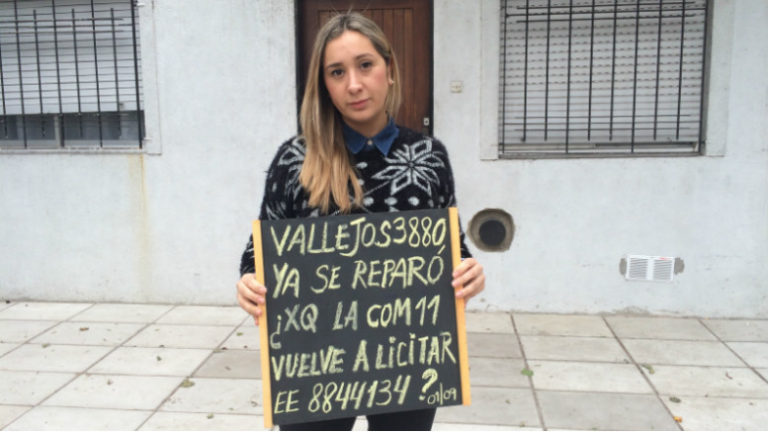 VALLEJOS3880
YA SE REPARÓ
¿XQ LA COM11
VUELVE A LICITAR
EE 8844134 ? 01/09